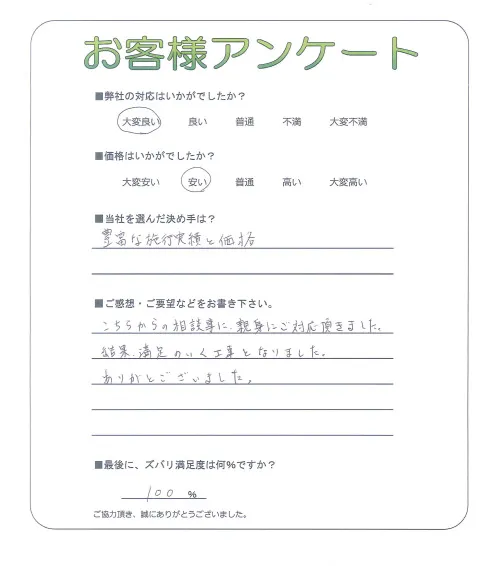 お客様アンケート
■弊社の対応はいかがでしたか？
大変良い 良い 普通 不満 大変不満
■価格はいかがでしたか？
大変安い 安い 普通 高い 大変高い
■当社を選んだ決め手は？
豊富な施行実績と価格
■ご感想・ご要望などをお書き下さい。
こちらからの相談事に、親身にご対応頂きました。
結果、満足のいく工事となりました。
ありがとございました。
■最後に、ズバリ満足度は何%ですか？
100 %
ご協力頂き、誠にありがとうございました。